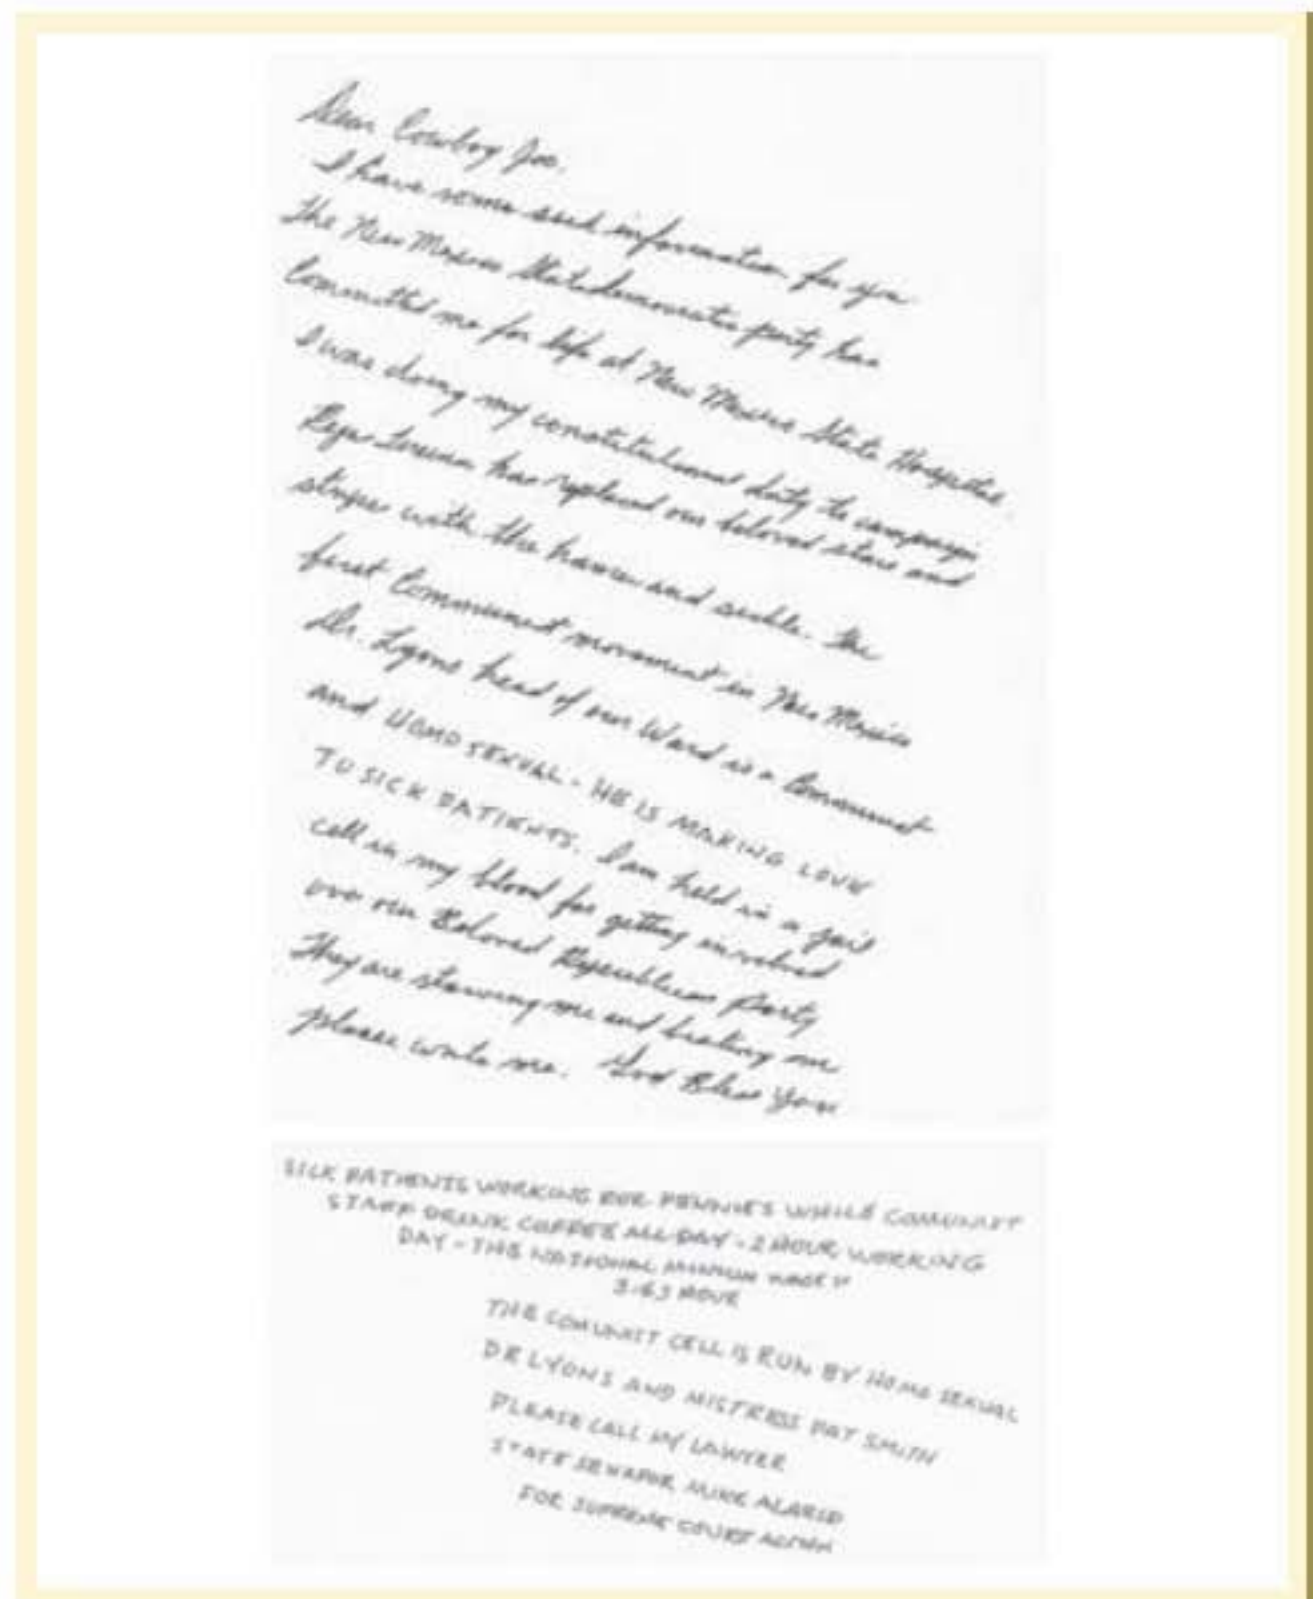 Dear Cowboy Joe,
I have some sad information for you
The New Mexico State democratic party has
Committed me for life at New Mexico State Hospital.
I was doing my constitutional duty to campaign
has replaced our beloved stars and
stripes with the hammer and sickle. The
first Communist movement in New Mexico
Dr. Lyons head of our Ward is a Communist
and HOMO SEXUAL - HE IS MAKING LOVE
TO SICK PATIENTS. I am held in a jail
cell in my blood for getting involved
over our Beloved Republican Party
They are starving me and beating me
please write me. God Bless You
SICK PATIENTS WORKING FOR PENNIES WHILE COMUNIST
STAFF DRINK COFFEE ALL DAY - 2 HOUR WORKING
DAY - THE NATIONAL MINIUM WAGE IS
3.63 HOUR
THE COMUNIST CELL IS RUN BY HOMO SEXUAL
DR LYONS AND MISTRESS PAT SMITH
PLEASE CALL MY LAWYER
STATE SENATOR MIKE ALARID
FOR SUPREME COURT ACTION